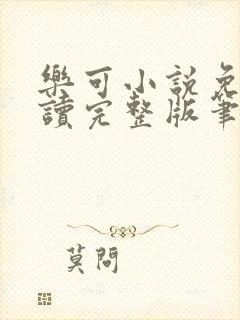 樂可小說免
讀完整版筆
莫問